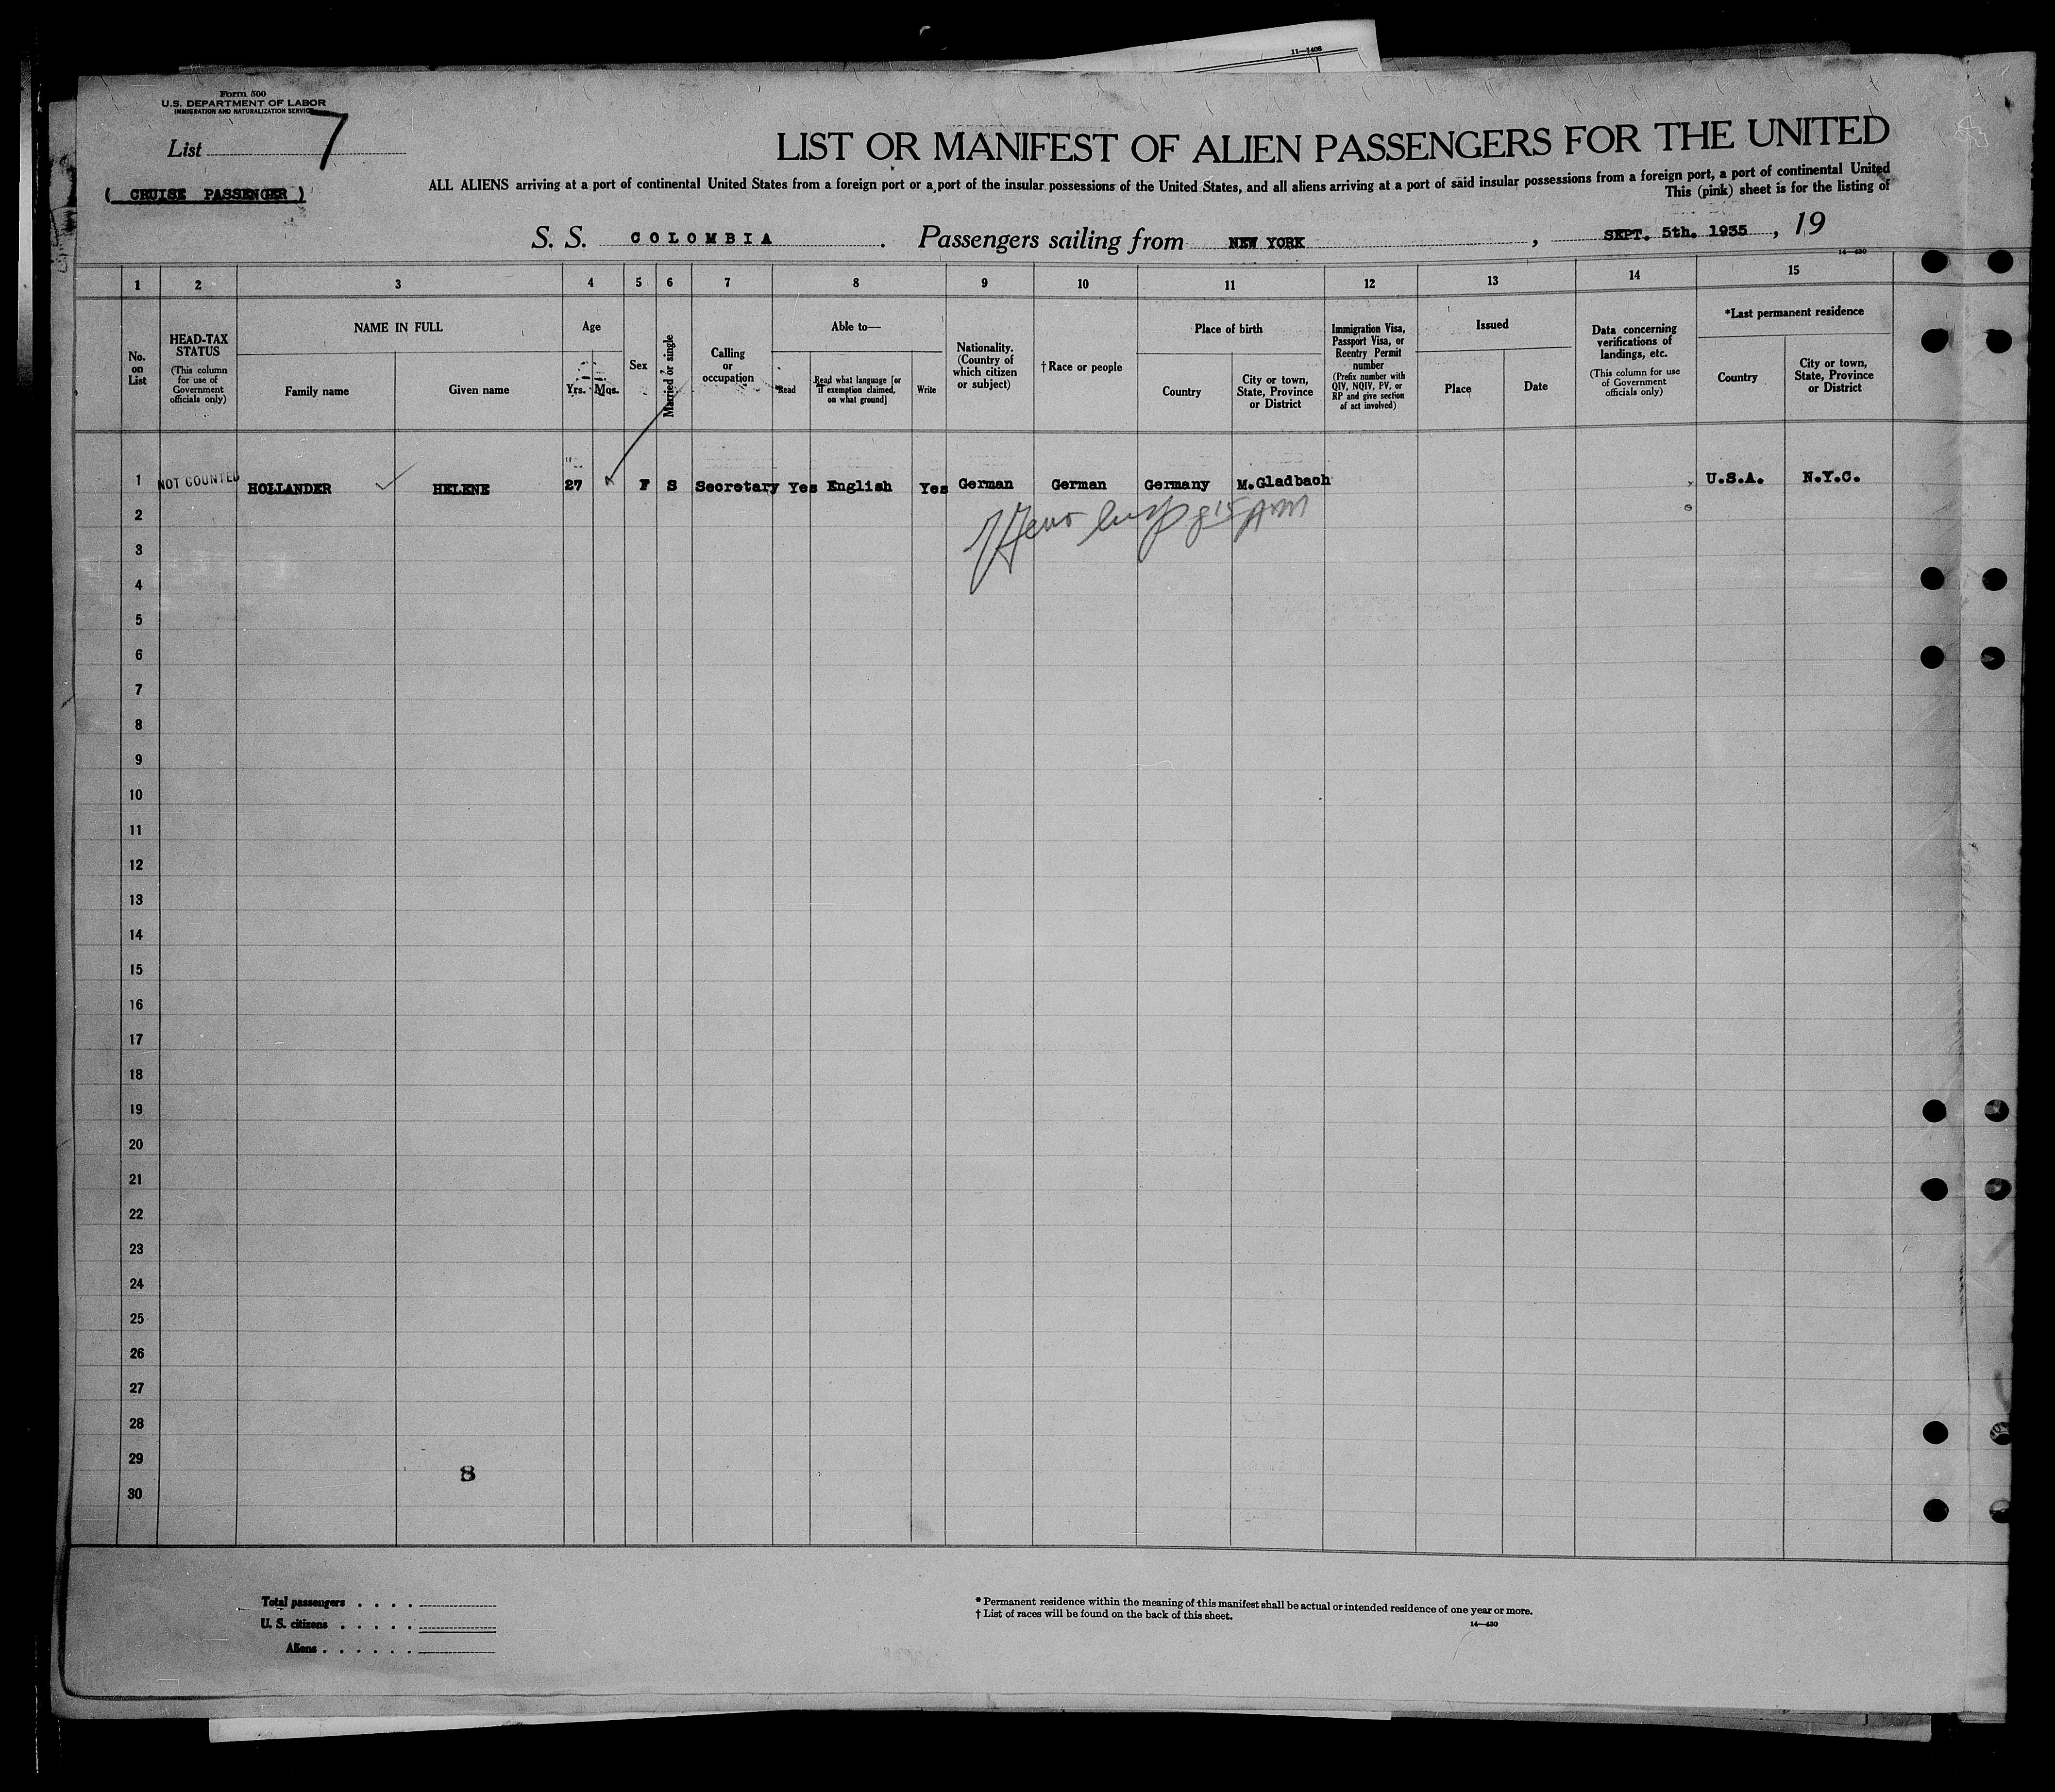 11—1408
Form 500
U.S. DEPARTMENT OF LABOR
IMMIGRATION AND NATURALIZATION SERVICE
List 7
LIST OR MANIFEST OF ALIEN PASSENGERS FOR THE UNITED
( CRUISE PASSENGER )
ALL ALIENS arriving at a port of continental United States from a foreign port or a port of the insular possessions of the United States, and all aliens arriving at a port of said insular possessions from a foreign port, a port of continental United
This (pink) sheet is for the listing of
S. S. COLOMBIA . Passengers sailing from NEW YORK , SEPT. 5th. 1935 , 19
14—430
1 2 3 4 5 6 7 8 9 10 11 12 13 14 15
No. on List
HEAD-TAX STATUS
(This column for use of Government officials only)
NAME IN FULL
Family name
Given name
Age
Yrs. Mos.
Sex
Married or single
Calling or occupation
Able to—
Read
Read what language [or if exemption claimed, on what ground]
Write
Nationality. (Country of which citizen or subject)
†Race or people
Place of birth
Country
City or town, State, Province or District
Immigration Visa, Passport Visa, or Reentry Permit number
(Prefix number with QIV, NQIV, PV, or RP and give section of act involved)
Issued
Place
Date
Data concerning verifications of landings, etc.
(This column for use of Government officials only)
*Last permanent residence
Country
City or town, State, Province or District
1 NOT COUNTED HOLLANDER HELENE 27 F S Secretary Yes English Yes German German Germany M.Gladbach U.S.A. N.Y.C.
2
3
4
5
6
7
8
9
10
11
12
13
14
15
16
17
18
19
20
21
22
23
24
25
26
27
28
29
8
30
Total passengers . . . .
U. S. citizens . . . . .
Aliens . . . . . .
* Permanent residence within the meaning of this manifest shall be actual or intended residence of one year or more.
† List of races will be found on the back of this sheet.
14—430